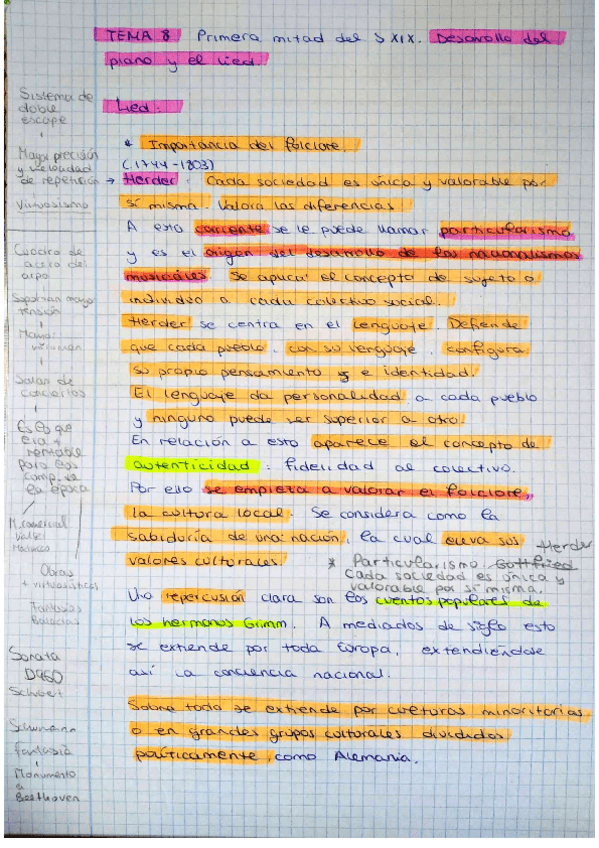 TEMA 8 Primera mitad del S XIX. Desarrollo del
piano y el Lied.
Lied:
* Importancia del folclore.
(1744-1803)
→ Herder: Cada sociedad es única y valorable por
sí misma. Valora las diferencias.
A esta corriente se le puede llamar particularismo,
y es el origen del desarrollo de los nacionalismos
musicales. Se aplica el concepto de sujeto o
individuo a cada colectivo social.
Herder se centra en el lenguaje. Defiende
que cada pueblo, con su lenguaje, configura
su propio pensamiento e identidad.
El lenguaje da personalidad a cada pueblo
y ninguno puede ser superior a otro.
En relación a esto aparece el concepto de
autenticidad: fidelidad al colectivo.
Por ello se empieza a valorar el folclore,
la cultura local. Se considera como la
sabiduría de una nación, la cual eleva sus
valores culturales.
* Particularismo. Gottfried Herder
Cada sociedad es única y
valorable por sí misma.
Una repercusión clara son los cuentos populares de
los hermanos Grimm. A mediados de siglo esto
se extiende por toda Europa, extendiéndose
así la conciencia nacional.
Sobre todo se extiende por culturas minoritarias
o en grandes grupos culturales divididos
políticamente, como Alemania.
Sistema de
doble
escape
Mayor precisión
y velocidad
de repetición
Virtuosismo
Cuadro de
acero del
arpa
Soportan mayor
tensión
Mayor
volumen
Salas de
conciertos
Es el que
era +
rentable
para los
comp. de
la época
M. comercial
Valses
Obras
+ virtuosísticas
Fantasías
Baladas
Sonata
D960
Schubert
Schumann
Fantasía
Monumento
a
Beethoven